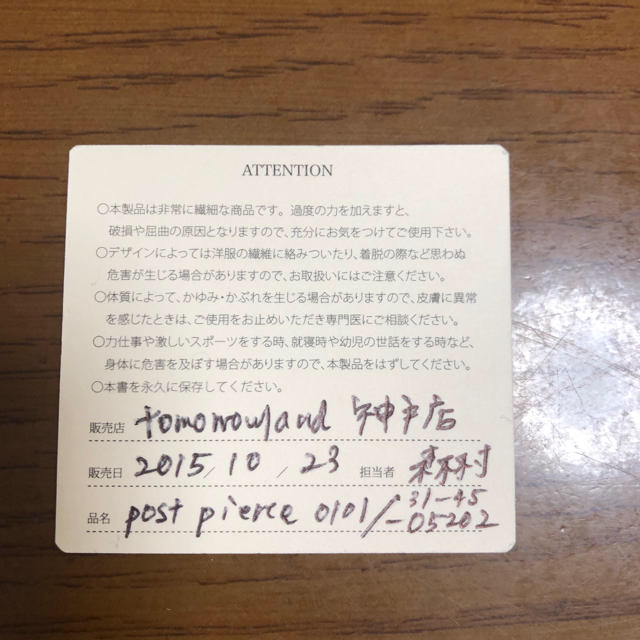 ATTENTION
○本製品は非常に繊細な商品です。過度の力を加えますと、
破損や屈曲の原因となりますので、充分にお気をつけてご使用下さい。
○デザインによっては洋服の繊維に絡みついたり、着脱の際など思わぬ
危害が生じる場合がありますので、お取扱いにはご注意ください。
○体質によって、かゆみ・かぶれを生じる場合がありますので、皮膚に異常
を感じたときは、ご使用をお止めいただき専門医にご相談ください。
○力仕事や激しいスポーツをする時、就寝時や幼児の世話をする時など、
身体に危害を及ぼす場合がありますので、本製品をはずしてください。
○本書を永久に保存してください。
販売店 tomorrowland 神戸店
販売日 2015/10/23 担当者 森村
品名 post pierce 0101/31-45
-05202